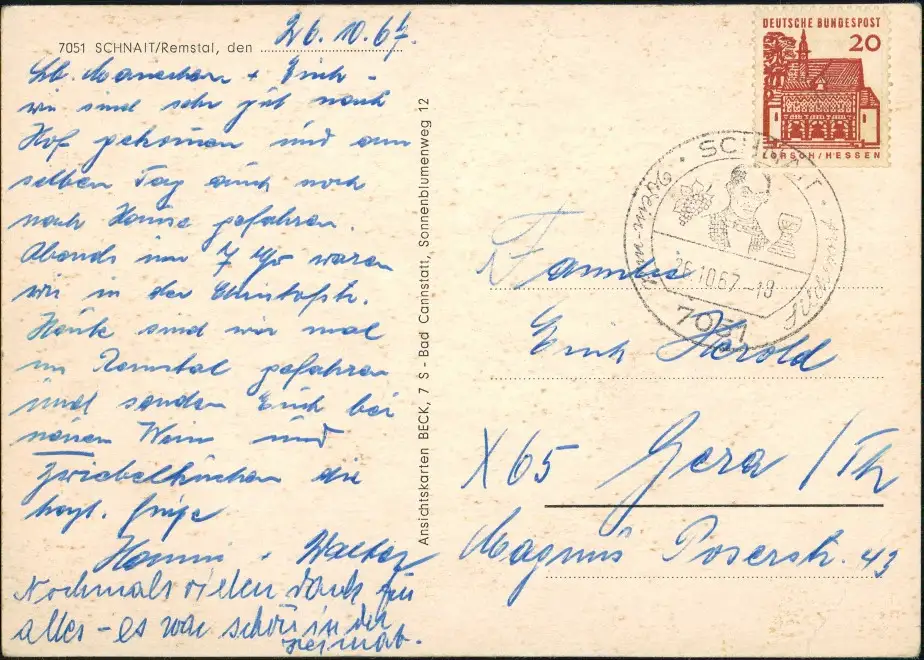 7051 SCHNAIT/Remstal, den 26.10.67.
Lb. Hannchen + Erich -
wir sind sehr gut nach
Hof gekommen und am
selben Tag auch noch
nach Hause gefahren.
Abends um 7 Uhr waren
wir in der Christofstr.
Heute sind wir mal
im Remstal gefahren
und senden Euch bei
neuen Wein und
Zwiebelkuchen die
herzl. Grüße
Hanni + Walter
Nochmals vielen Dank für
alles - es war schön in der
Heimat.
Ansichtskarten BECK, 7 S - Bad Cannstatt, Sonnenblumenweg 12
DEUTSCHE BUNDESPOST
20
LORSCH/HESSEN
SCHNAIT
Wein- und
26.10.67-18
7051
Familie
Erich Herold
X65 Gera /Th
Magnus Poserstr. 43